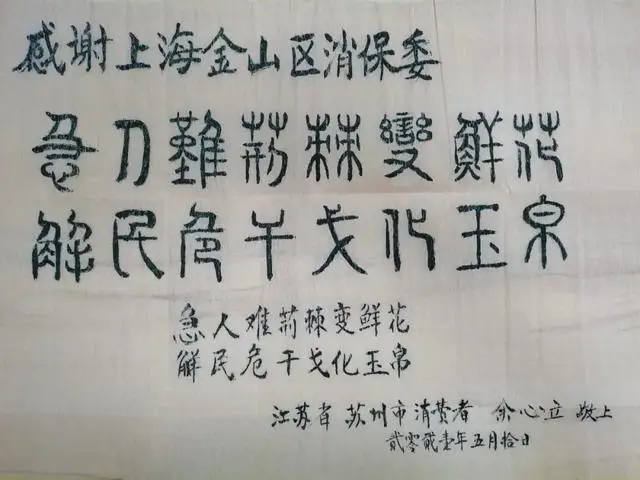 感谢上海金山区消保委
急人難荊棘變鮮花
解民危干戈化玉帛
急人难荊棘变鲜花
解民危干戈化玉帛
江苏省 苏州市 消费者 余心立 敬上
贰零贰壹年五月拾日